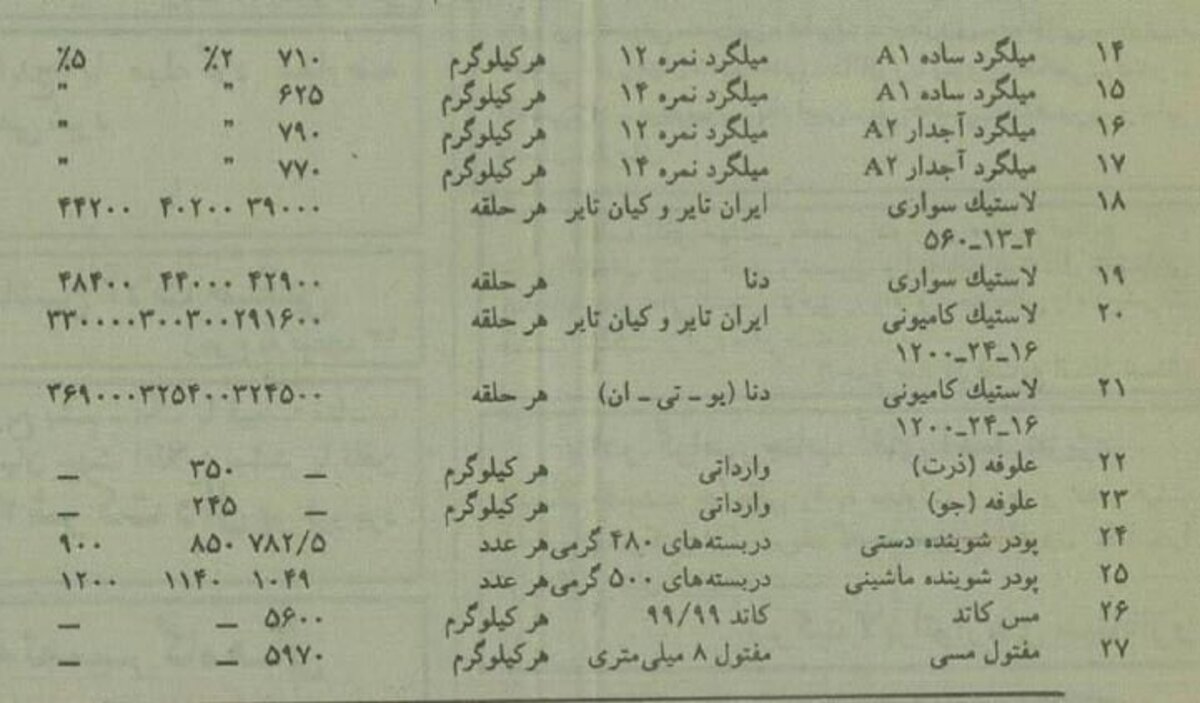 ۱۴ میلگرد ساده A۱ میلگرد نمره ۱۲ هر کیلوگرم ۷۱۰ ٪۲ ٪۵
۱۵ میلگرد ساده A۱ میلگرد نمره ۱۴ هر کیلوگرم ۶۲۵ " "
۱۶ میلگرد آجدار A۲ میلگرد نمره ۱۲ هر کیلوگرم ۷۹۰ " "
۱۷ میلگرد آجدار A۲ میلگرد نمره ۱۴ هر کیلوگرم ۷۷۰ " "
۱۸ لاستیك سواری ایران تایر و کیان تایر هر حلقه ۳۹۰۰۰ ۴۰۲۰۰ ۴۴۲۰۰
۵۶۰ـ۱۳ـ۴
۱۹ لاستیك سواری دنا هر حلقه ۴۲۹۰۰ ۴۴۰۰۰ ۴۸۴۰۰
۲۰ لاستیك کامیونی ایران تایر و کیان تایر هر حلقه ۲۹۱۶۰۰ ۳۰۰۳۰۰ ۳۳۰۰۰۰
۱۲۰۰ـ۲۴ـ۱۶
۲۱ لاستیك کامیونی دنا (یو ـ تی ـ ان) هر حلقه ۳۲۴۵۰۰ ۳۲۵۴۰۰ ۳۶۹۰۰۰
۱۲۰۰ـ۲۴ـ۱۶
۲۲ علوفه (ذرت) وارداتی هر کیلوگرم ـ ۳۵۰ ـ
۲۳ علوفه (جو) وارداتی هر کیلوگرم ـ ۲۴۵ ـ
۲۴ پودر شوینده دستی دربسته‌های ۴۸۰ گرمی هر عدد ۷۸۲/۵ ۸۵۰ ۹۰۰
۲۵ پودر شوینده ماشینی دربسته‌های ۵۰۰ گرمی هر عدد ۱۰۴۹ ۱۱۴۰ ۱۲۰۰
۲۶ مس کاتد کاتد ۹۹/۹۹ هر کیلوگرم ۵۶۰۰ ـ ـ
۲۷ مفتول مسی مفتول ۸ میلی‌متری هرکیلوگرم ۵۹۷۰ ـ ـ